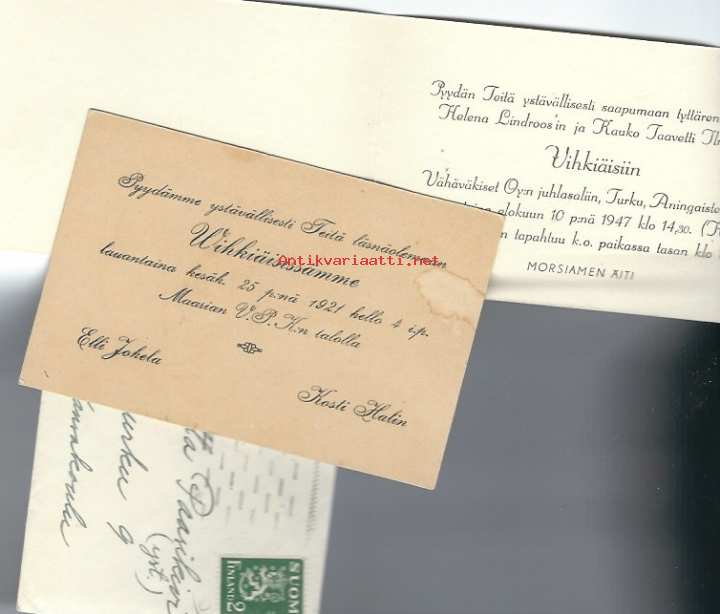 Pyydän Teitä ystävällisesti saapumaan tyttären
Helena Lindroos'in ja Kauko Taavetti
Vihkiäisiin
Vähäväkiset Oy:n juhlasaliin, Turku,
elokuun 10 p:nä 1947 klo 14,30.
tapahtuu k.o. paikassa tasan klo
MORSIAMEN ÄITI
Pyydämme ystävällisesti Teitä läsnäolemaan
Wihkiäisissämme
Antikvariaatti.net
lauantaina kesäk. 25 p:nä 1921 kello 4 i.p.
Maarian V.P.K:n talolla
Elli Jokela
Kosti Halin
Turku 9
(yst.)
SUOMI
FINLAND 2